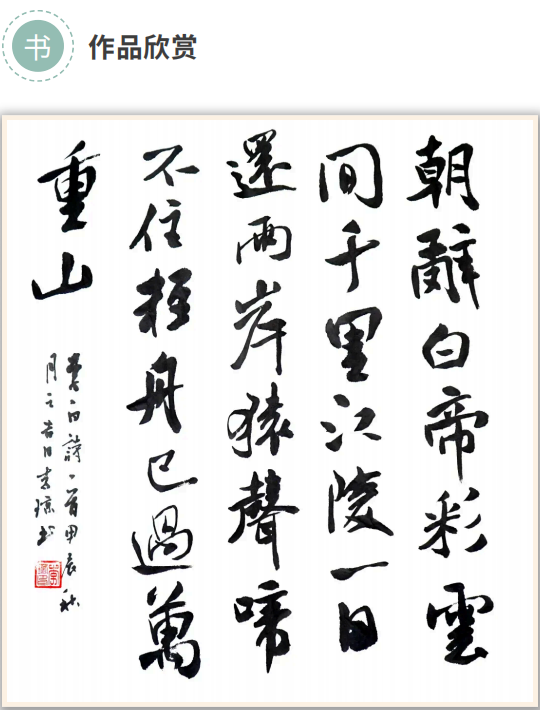 书
作品欣赏
朝辭白帝彩雲
間千里江陵一日
還兩岸猿聲啼
不住輕舟已過萬
重山
白詩一首甲辰秋
月之吉日李琼书